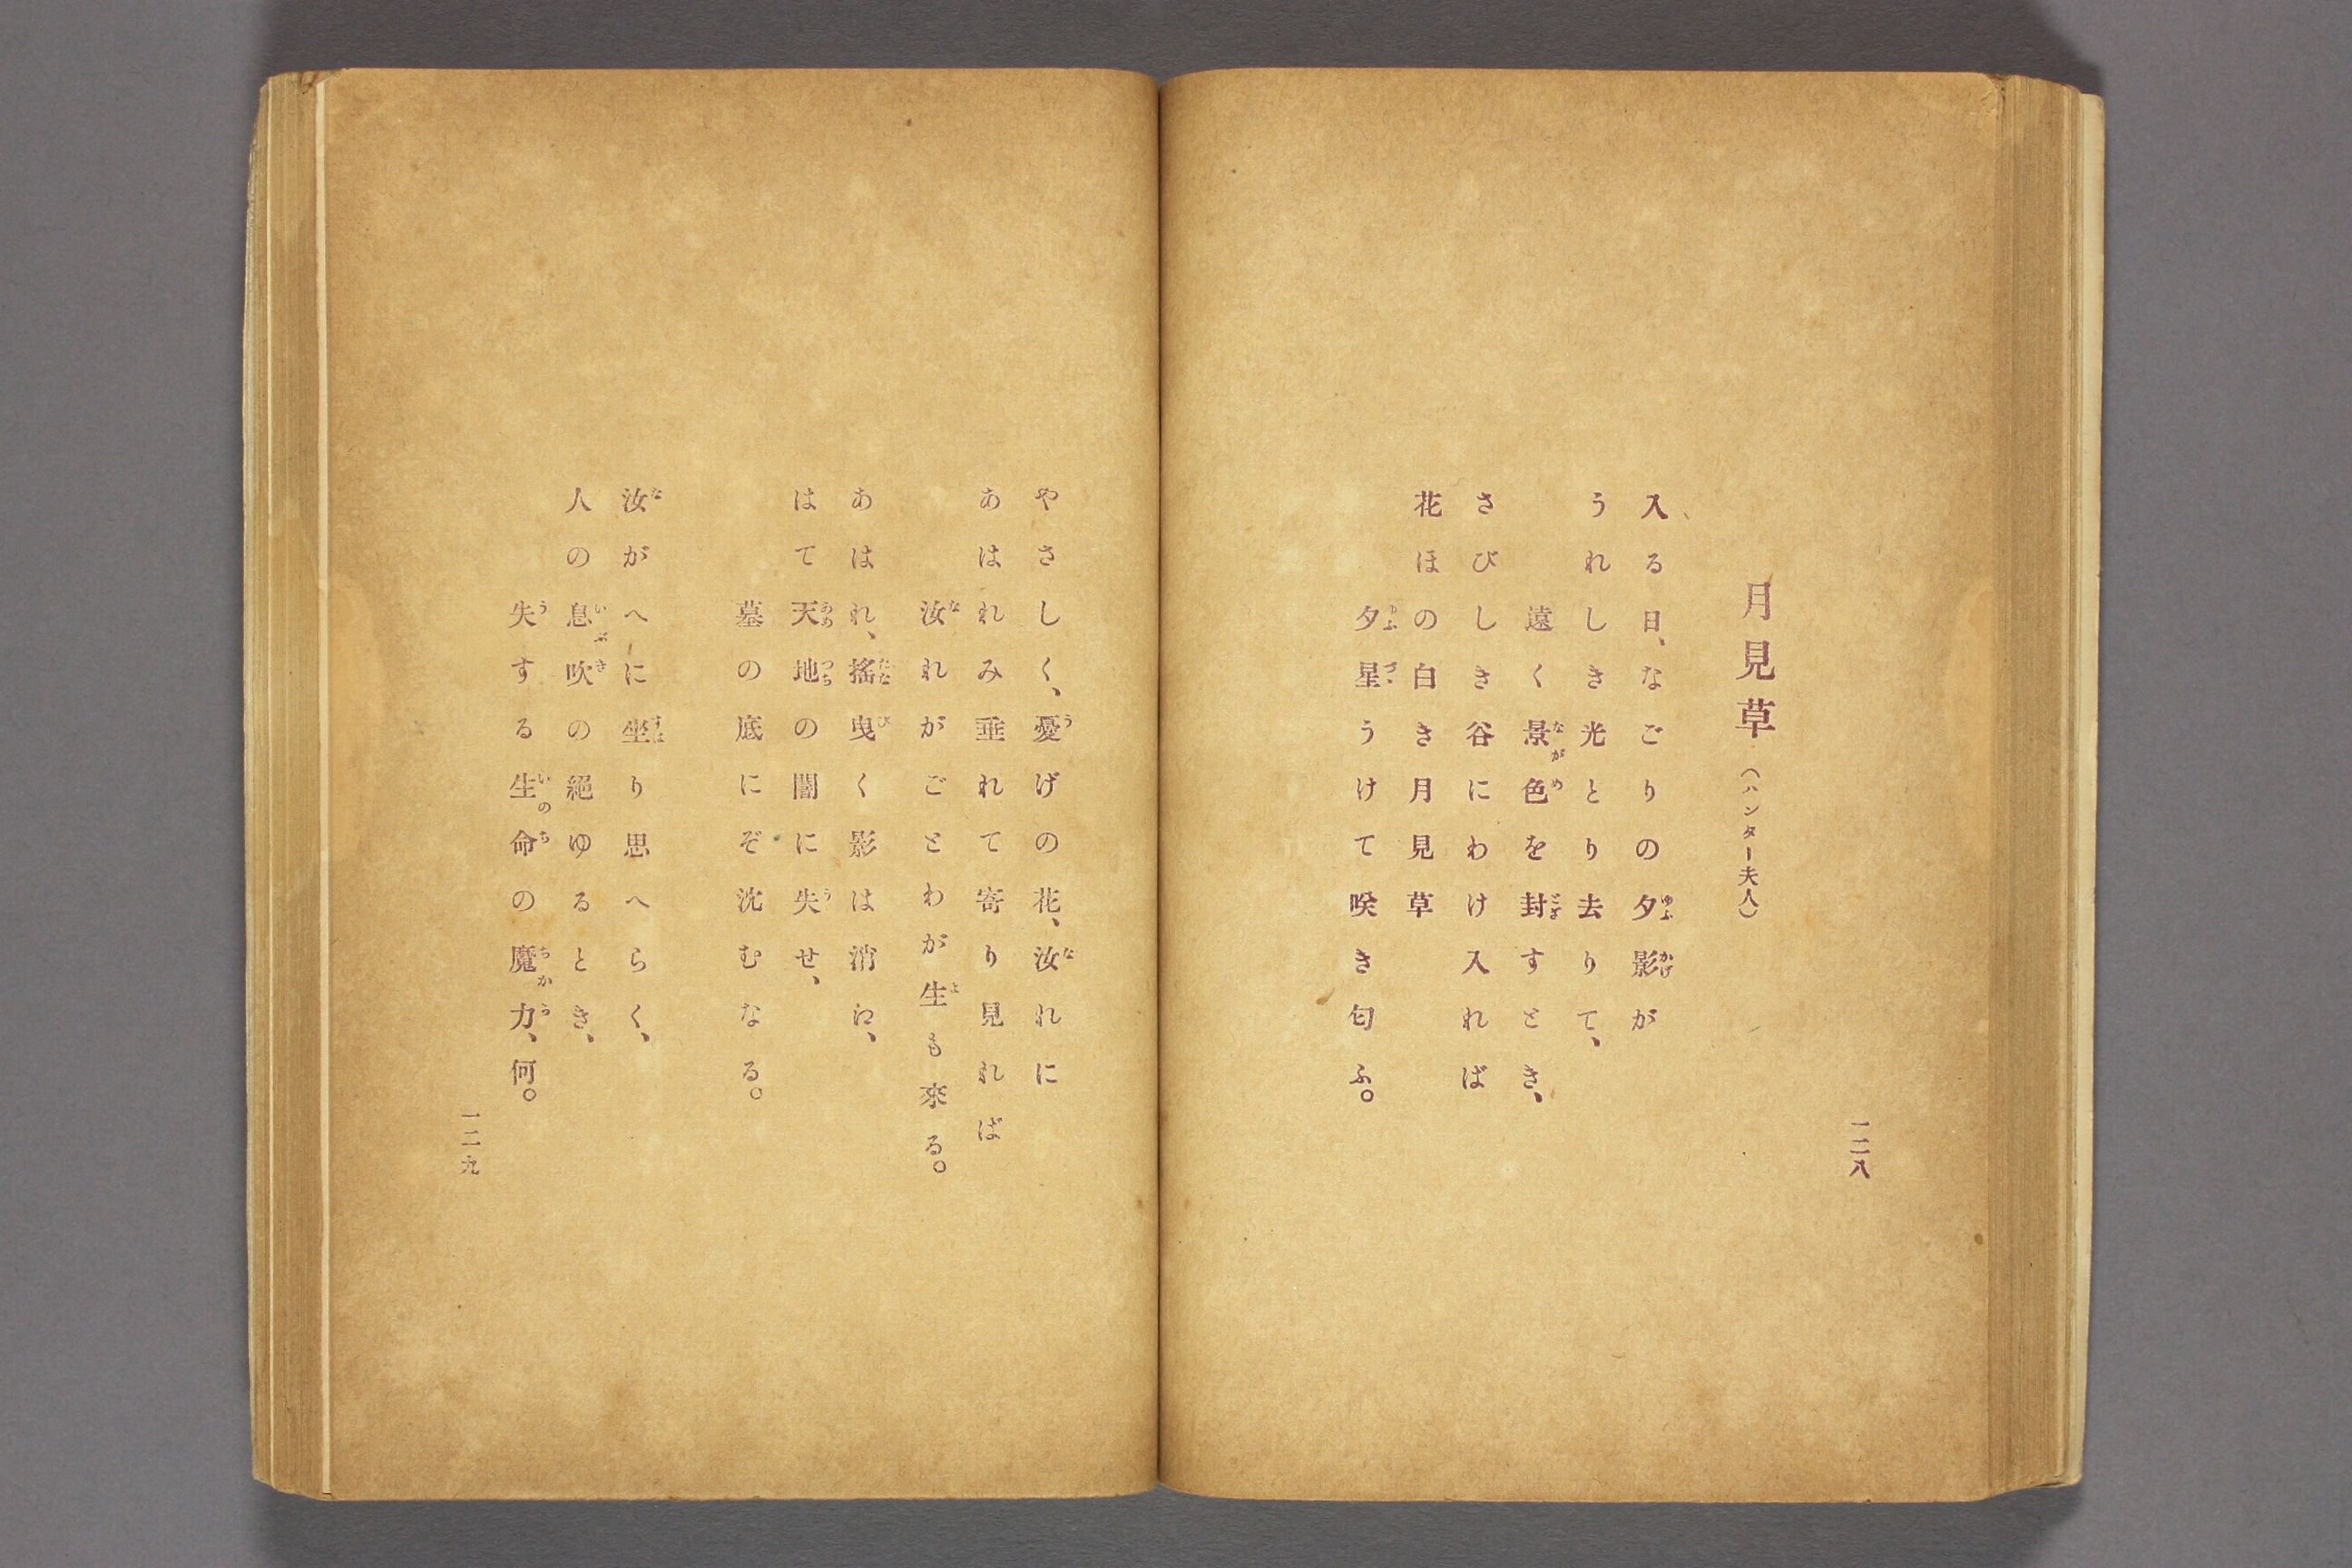 一二八
月見草（ハンター夫人）
入る日、なごりの夕影が
うれしき光とり去りて、
遠く景色を封すとき、
さびしき谷にわけ入れば
花ほの白き月見草
夕星うけて咲き匂ふ。
やさしく、憂げの花、汝れに
あはれみ垂れて寄り見れば
汝れがごとわが生も來る。
あはれ、搖曳く影は消に、
はて天地の闇に失せ、
墓の底にぞ沈むなる。
汝がへに坐り思へらく、
人の息吹の絕ゆるとき、
失する生命の魔力、何。
一二九